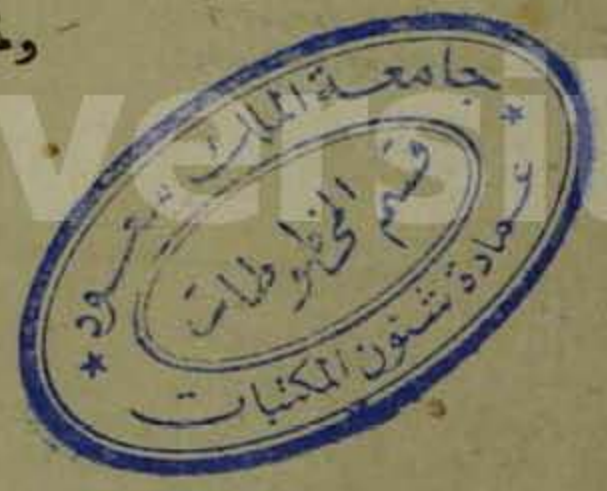 جامعة الملك سعود
قسم
المخطوطات
عمادة شئون المكتبات
versi